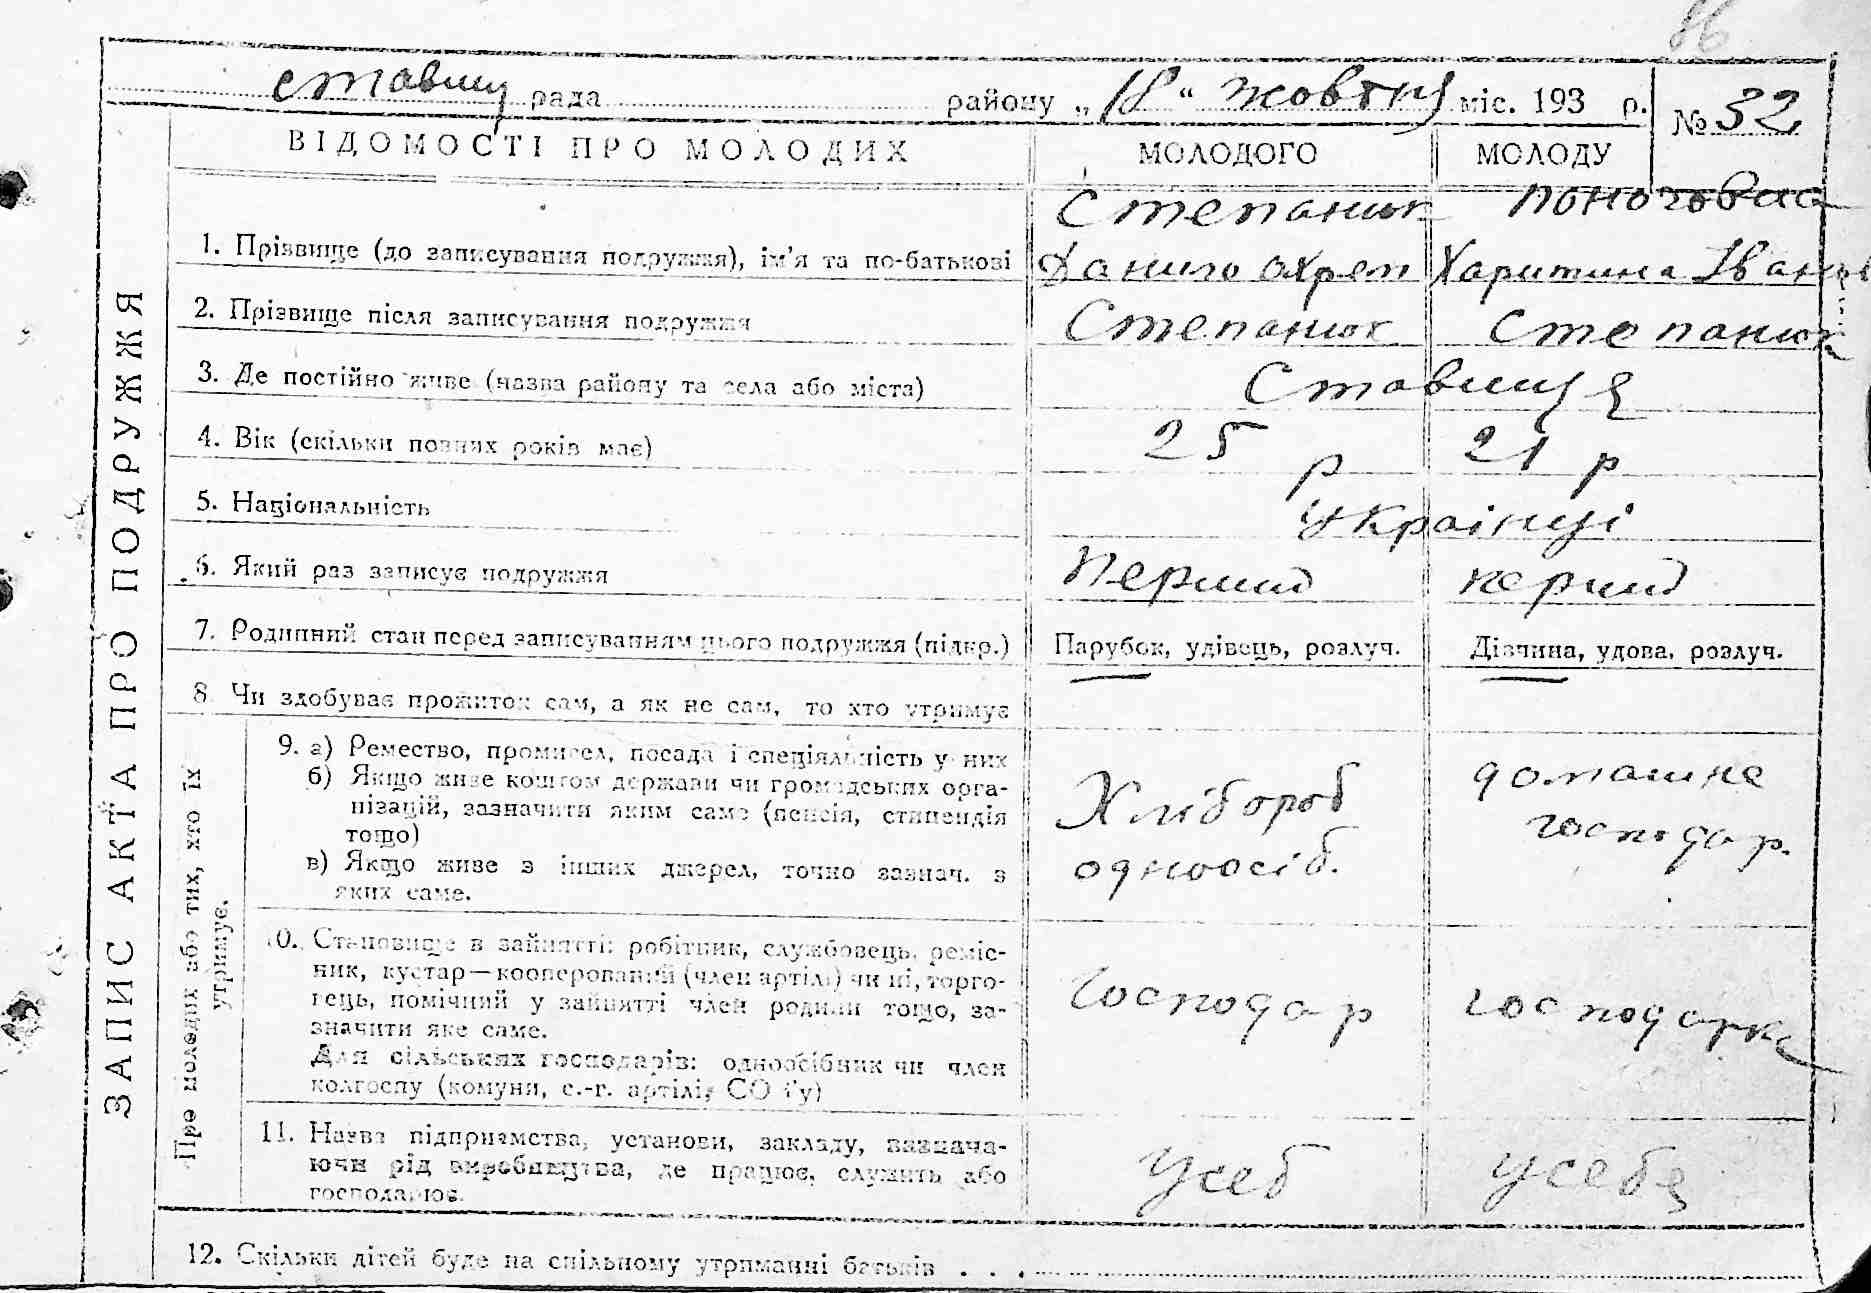 86
ставищ рада району „18“ жовтня міс. 193 р. № 32
ВІДОМОСТІ ПРО МОЛОДИХ МОЛОДОГО МОЛОДУ
Степанюк
1. Прізвище (до записування подружжя), ім'я та по-батькові Данило Охрем Харитина Іванов
2. Прізвище після записування подружжя Степанюк Степанюк
3. Де постійно живе (назва району та села або міста) Ставище
4. Вік (скільки повних років має) 25 р 21 р
5. Національність Українці
6. Який раз записує подружжя Перший перший
7. Родинний стан перед записуванням цього подружжя (підкр.) Парубок, удівець, розлуч. Дівчина, удова, розлуч.
8. Чи здобуває прожиток сам, а як не сам, то хто утримує
9. а) Ремество, промисел, посада і спеціяльність у них
б) Якщо живе коштом держави чи громадських орга-
нізацій, зазначити яким саме (пенсія, стипендія
тощо)
в) Якщо живе з інших джерел, точно зазнач. з
яких саме.
Хлібороб
одноосіб.
домашне
господар.
10. Становище в зайнятті: робітник, службовець, реміс-
ник, кустар—кооперований (член артілі) чи ні, торго-
вець, помічний у зайнятті член родини тощо, за-
значити яке саме.
Для сільських господарів: одноосібник чи член
колгоспу (комуни, с.-г. артілі, СОЗ'у)
Господар господарка
11. Назва підприємства, установи, закладу, зазнача-
ючи рід виробництва, де працює, служить або
господарює.
Усеб усебе
12. Скільки дітей буде на спільному утриманні батьків . . .
ЗАПИС АКТА ПРО ПОДРУЖЖЯ
Про молодих або тих, хто їх
утримує.